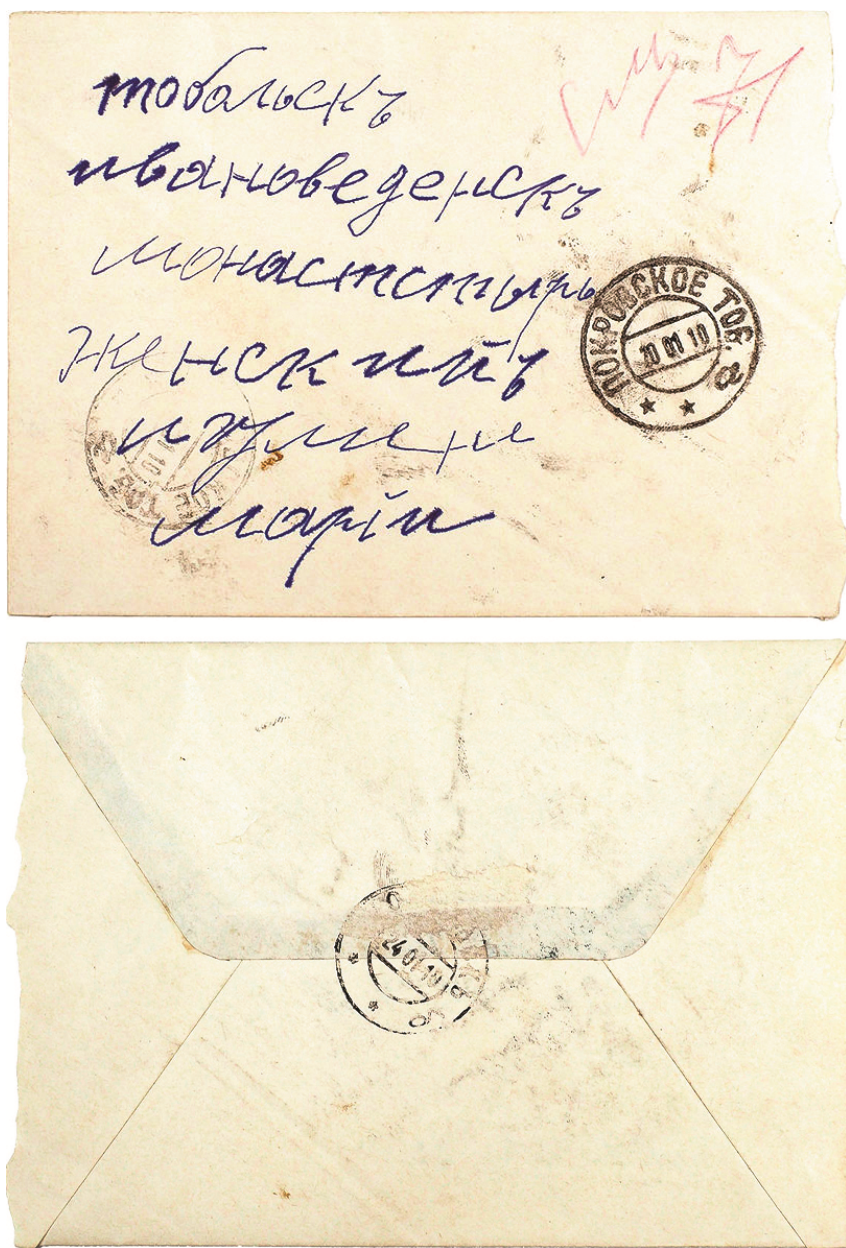 тобольскъ
ивановеденскъ
монастстырь
женскиийъ
игумене
марiи
ПОКРОВСКОЕ ТОБ. 8
20 01 10
ТОБ. 8
24 01 10